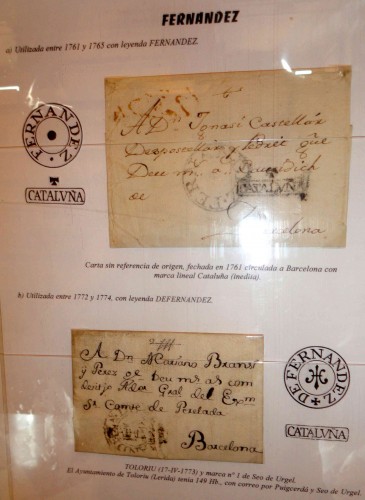 FERNANDEZ
a) Utilizada entre 1761 y 1765 con leyenda FERNANDEZ.
FERNANDEZ
CATALVÑA
A D. Ignasi Castellar
que
de
CATALVÑ
Barcelona
Carta sin referencia de origen, fechada en 1761 circulada a Barcelona con
marca lineal Cataluña (inedita).
b) Utilizada entre 1772 y 1774, con leyenda DEFERNANDEZ.
A Dn Mariano Bransi
y Perez
Gral del Exm
Sr Comte de Perelada
Barcelona
DE FERNANDEZ
CATALUÑA
TOLORIU (17-IV-1773) y marca nº 1 de Seo de Urgel.
El Ayuntamiento de Toloriu (Lerida) tenia 149 Hb., con correo por Puigcerdá y Seo de Urgel.